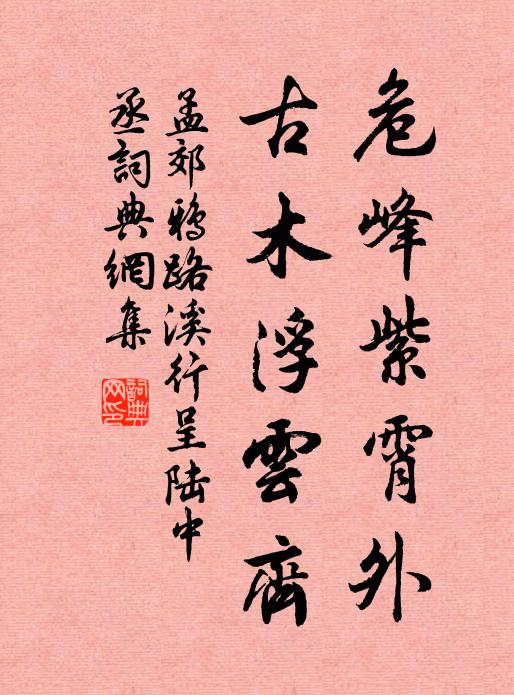 危峰紫霄外
古木浮雲齊
孟郊鴉路溪行呈陆中
丞詞典網集
詞典网印